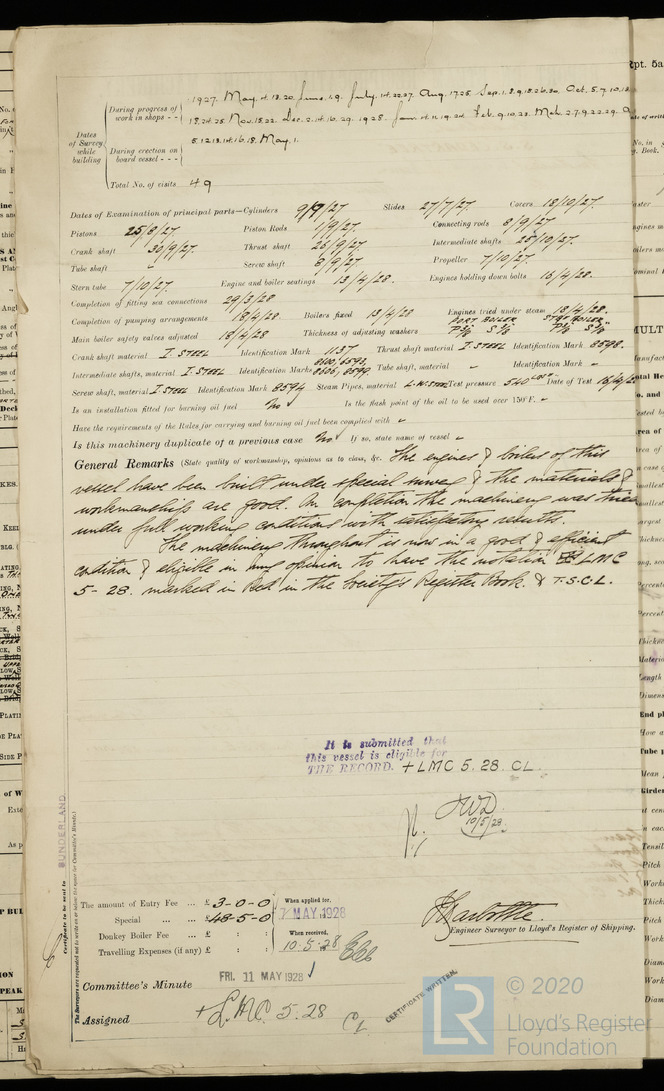 1927. May. 4. 13. 20. June. 1. 9. July. 14. 22. 27. Aug. 17. 25. Sep. 1. 8. 9. 15. 26. 30. Oct. 5. 7. 10. 13.
During progress of work in shops - -
18. 24. 25. Nov. 15. 22. Dec. 2. 14. 16. 29. 1928. Jan. 4. 11. 19. 24. Feb. 9. 10. 23. Mch. 2. 7. 9. 22. 29.
Dates of Survey while building
During erection on board vessel - - -
5. 12. 13. 14. 16. 18. May. 1.
Total No. of visits 49
Dates of Examination of principal parts—Cylinders 9/9/27 Slides 27/7/27. Covers 18/10/27.
Pistons 25/8/27 Piston Rods 1/9/27. Connecting rods 8/9/27
Crank shaft 30/9/27. Thrust shaft 26/9/27 Intermediate shafts 25/10/27.
Tube shaft - Screw shaft 8/9/27 Propeller 7/10/27
Stern tube 7/10/27 Engine and boiler seatings 13/4/28. Engines holding down bolts 16/4/28.
Completion of fitting sea connections 29/3/28
Completion of pumping arrangements 18/4/28 Boilers fixed 13/4/28 Engines tried under steam 18/4/28.
PORT BOILER STBD BOILER
Main boiler safety valves adjusted 18/4/28 Thickness of adjusting washers
Crank shaft material I. STEEL Identification Mark 1137 Thrust shaft material I. STEEL Identification Mark 8598.
Intermediate shafts, material I. STEEL Identification Marks 8100, 6592, 8106, 8599. Tube shaft, material - Identification Mark -
Screw shaft, material I. STEEL Identification Mark 8594 Steam Pipes, material L.W. STEEL Test pressure 540 LBS Date of Test 16/4/28
Is an installation fitted for burning oil fuel No Is the flash point of the oil to be used over 150°F. -
Have the requirements of the Rules for carrying and burning oil fuel been complied with -
Is this machinery duplicate of a previous case No If so, state name of vessel -
General Remarks (State quality of workmanship, opinions as to class, &c. The engines & boilers of this
vessel have been built under special survey & the materials &
workmanship are good. On completion the machinery was tried
under full working conditions with satisfactory results.
The machinery throughout is now in a good & efficient
condition & eligible in my opinion to have the notation LMC
5-28. marked in Red in the Society's Register Book. & T.S.C.L.
It is submitted that
this vessel is eligible for
THE RECORD. + LMC 5. 28. CL.
JWD
10/5/28
SUNDERLAND
Certificate to be sent to
The Surveyors are requested not to write on or below the space for Committee's Minute.
The amount of Entry Fee ... £ 3-0-0 When applied for,
Special ... ... £ 48-5-0 7 MAY 1928
Donkey Boiler Fee ... £ : : When received,
Travelling Expenses (if any) £ : : 10.5.28
Engineer Surveyor to Lloyd's Register of Shipping.
Committee's Minute FRI. 11 MAY 1928
Assigned + L.M.C. 5. 28 CL
CERTIFICATE WRITTEN.
LR
© 2020
Lloyd's Register
Foundation